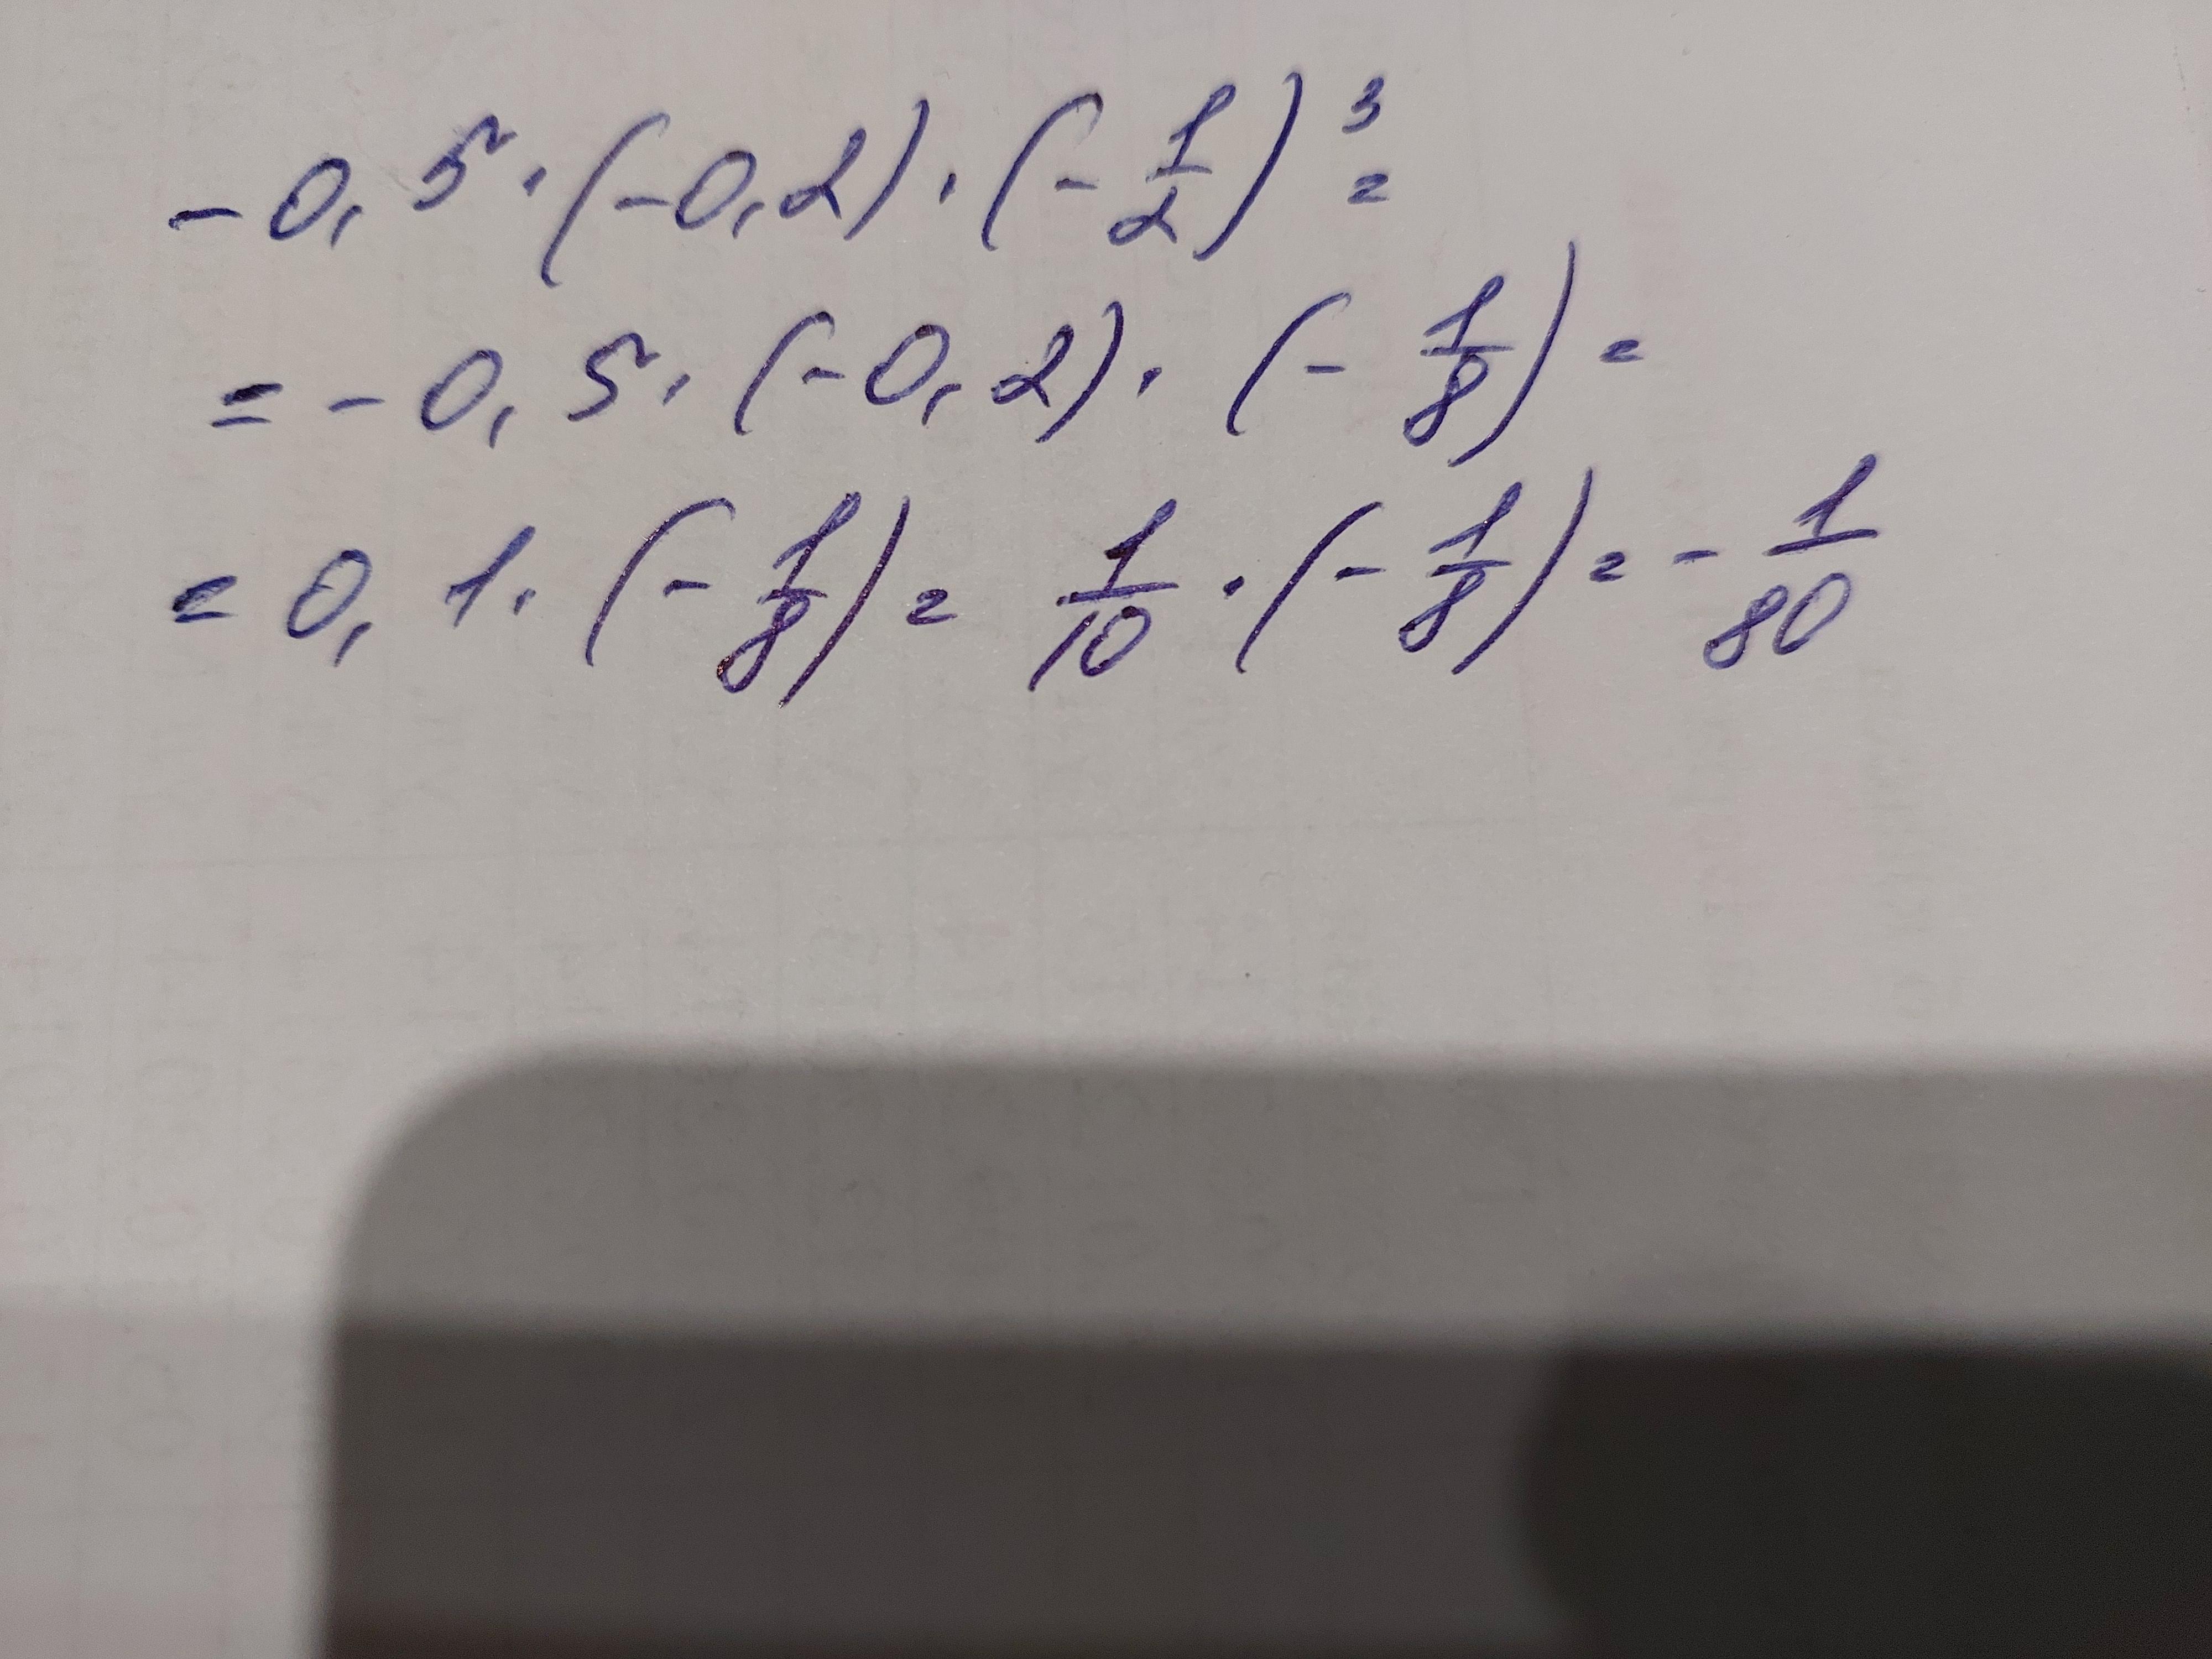 -0,5·(-0,2)·(-1/2)³=
=-0,5·(-0,2)·(-1/8)=
=0,1·(-1/8)=1/10·(-1/8)=-1/80